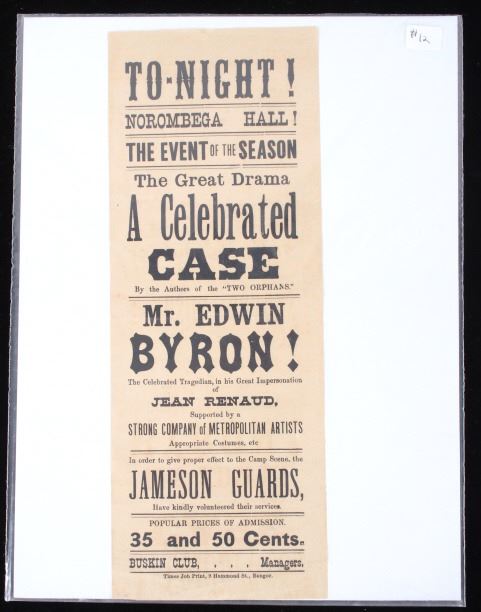 #12
TO-NIGHT!
NOROMBEGA HALL!
THE EVENT OF THE SEASON
The Great Drama
A Celebrated
CASE
By the Authors of the "TWO ORPHANS."
Mr. EDWIN
BYRON!
The Celebrated Tragedian, in his Great Impersonation
of
JEAN RENAUD,
Supported by a
STRONG COMPANY of METROPOLITAN ARTISTS
Appropriate Costumes, etc
In order to give proper effect to the Camp Scene, the
JAMESON GUARDS,
Have kindly volunteered their services.
POPULAR PRICES OF ADMISSION.
35 and 50 Cents.
BUSKIN CLUB, . . . Managers.
Times Job Print, 2 Hammond St., Bangor.